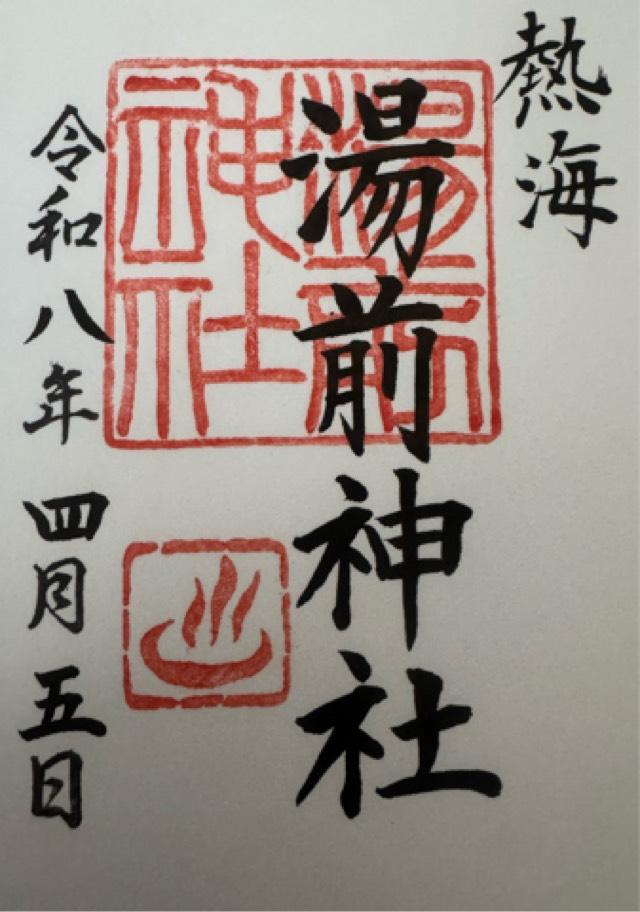 熱海
湯前神社
湯前神社
令和八年四月五日